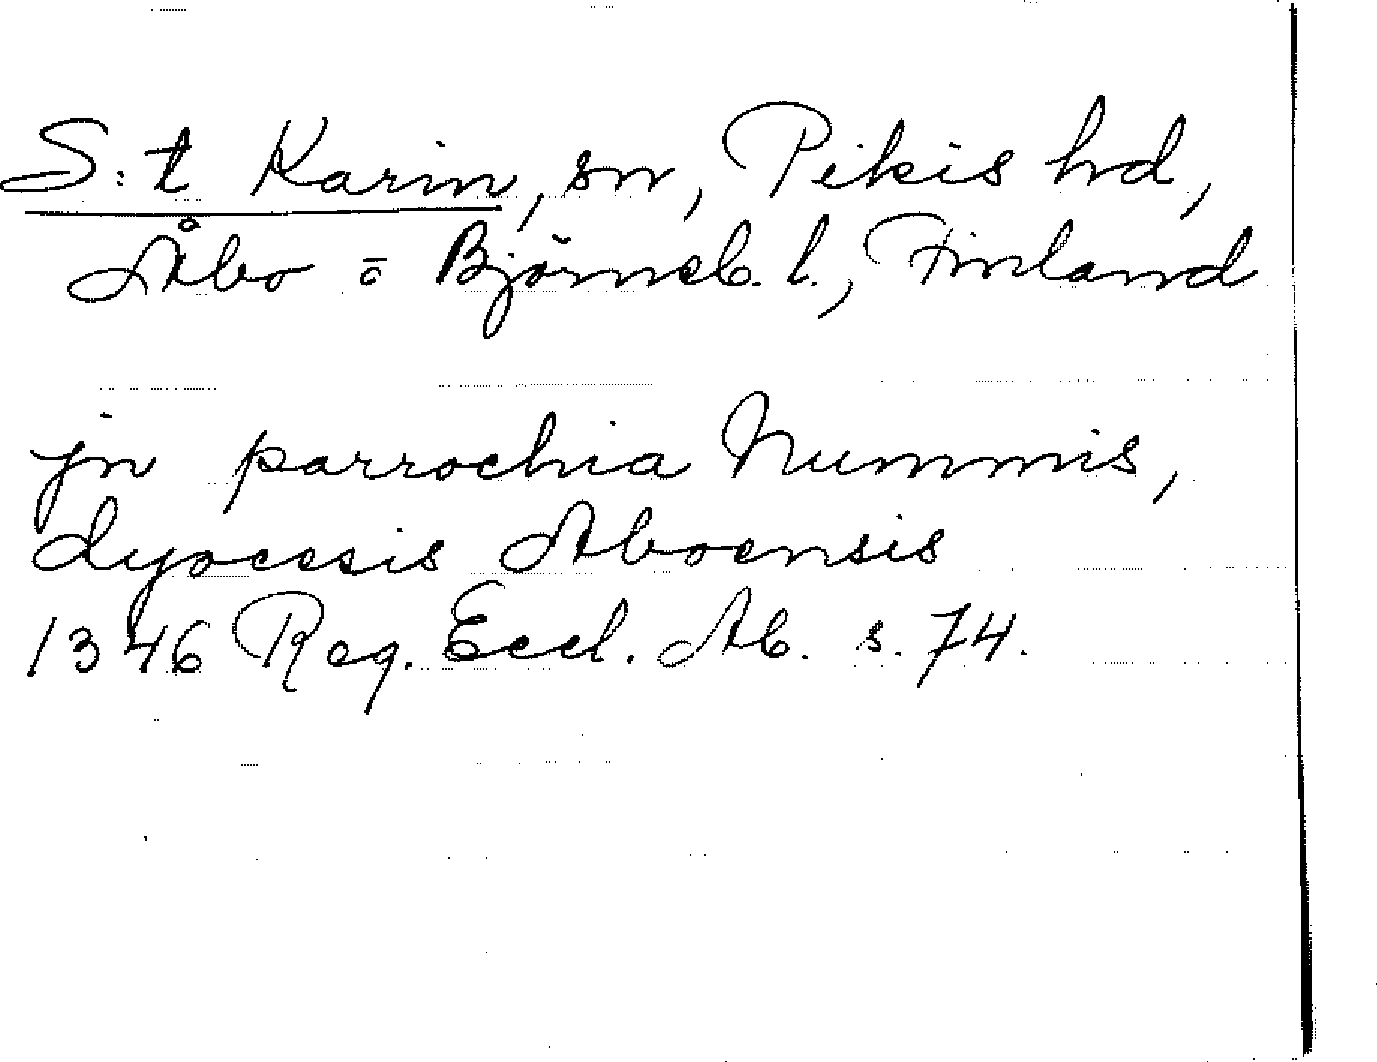 S:t Karin, sn, Pikis hd,
Åbo o Björneb. l., Finland
jn parrochia Nummis,
dyocesis Aboensis
1346 Reg. Eccl. Ab. s. 74.